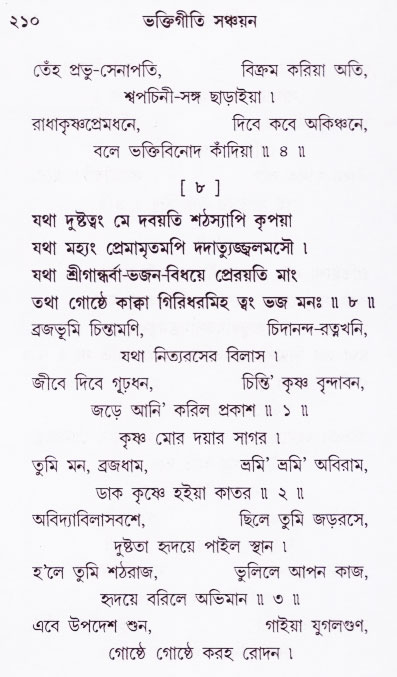 ২১০ ভক্তিগীতি সঞ্চয়ন
তেঁহ প্রভু-সেনাপতি, বিক্রম করিয়া অতি,
শ্বপচিনী-সঙ্গ ছাড়াইয়া ।
রাধাকৃষ্ণপ্রেমধনে, দিবে কবে অকিঞ্চনে,
বলে ভক্তিবিনোদ কাঁদিয়া ॥ ৪ ॥
[ ৮ ]
যথা দুষ্টত্বং মে দবয়তি শঠস্যাপি কৃপয়া
যথা মহ্যং প্রেমামৃতমপি দদাত্যুজ্জ্বলমসৌ ।
যথা শ্রীগান্ধর্বা-ভজন-বিধয়ে প্রেরয়তি মাং
তথা গোষ্ঠে কাক্কা গিরিধরমিহ ত্বং ভজ মনঃ ॥ ৮ ॥
ব্রজভূমি চিন্তামণি, চিদানন্দ-রত্নখনি,
যথা নিত্যরসের বিলাস ।
জীবে দিবে গূঢ়ধন, চিন্তি' কৃষ্ণ বৃন্দাবন,
জড়ে আনি' করিল প্রকাশ ॥ ১ ॥
কৃষ্ণ মোর দয়ার সাগর ।
তুমি মন, ব্রজধাম, ভ্রমি' ভ্রমি' অবিরাম,
ডাক কৃষ্ণে হইয়া কাতর ॥ ২ ॥
অবিদ্যাবিলাসবশে, ছিলে তুমি জড়রসে,
দুষ্টতা হৃদয়ে পাইল স্থান ।
হ'লে তুমি শঠরাজ, ভুলিলে আপন কাজ,
হৃদয়ে বরিলে অভিমান ॥ ৩ ॥
এবে উপদেশ শুন, গাইয়া যুগলগুণ,
গোষ্ঠে গোষ্ঠে করহ রোদন ।